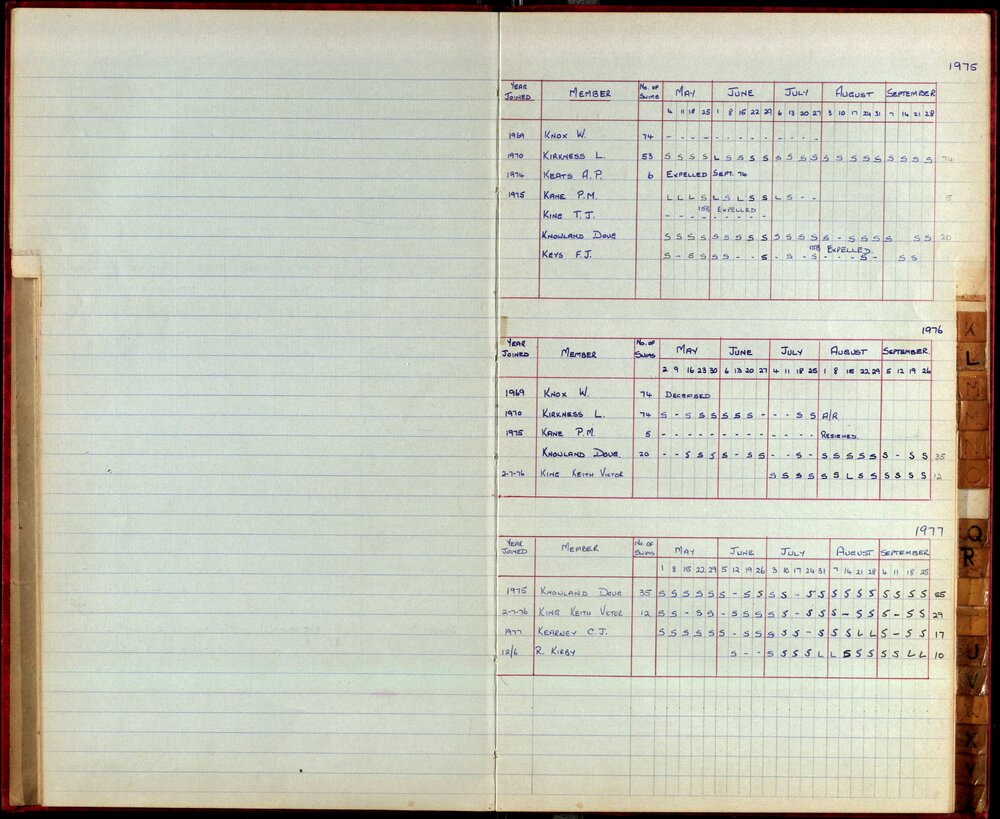 1975
YEAR JOINED MEMBER No. OF SWIMS MAY JUNE JULY AUGUST SEPTEMBER
4 11 18 25 1 8 15 22 29 6 13 20 27 3 10 17 24 31 7 14 21 28
1969 KNOX W. 74 - - - - - - - - - - - - -
1970 KIRKNESS L. 53 S S S S L S S S S S S S S S S S S S S S S S 74
1974 KEATS A.P. 6 EXPELLED SEPT. 74
1975 KANE P.M. L L L S L S L S S L S - - 5
15B EXPELLED
KING T.J. - - - - - - - - -
KNOWLAND DOUG S S S S S S S S S S S S S S - S S S S S S 20
15B EXPELLED.
KEYS F.J. S - S S S S - - S - S - S - - - S - S S
1976
YEAR JOINED MEMBER No. OF SWIMS MAY JUNE JULY AUGUST SEPTEMBER
2 9 16 23 30 6 13 20 27 4 11 18 25 1 8 15 22 29 5 12 19 26
1969 KNOX W. 74 DECEASED
1970 KIRKNESS L. 74 S - S S S S S S - - - S S A/R
1975 KANE P.M. 5 - - - - - - - - - - - - - RESIGNED.
KNOWLAND DOUG. 20 - - S S S S - S S - - S - S S S S S S - S S 35
2-7-76 KING KEITH VICTOR S S S S S S L S S S S S S 12
1977
YEAR JOINED MEMBER No. OF SWIMS MAY JUNE JULY AUGUST SEPTEMBER
1 8 15 22 29 5 12 19 26 3 10 17 24 31 7 14 21 28 4 11 18 25
1975 KNOWLAND DOUG 35 S S S S S S - S S S S - S S S S S S S S S S 55
2-7-76 KING KEITH VICTOR 12 S S - S S - S S S S S - S S S - S S S - S S 29
1977 KEARNEY C.J. S S S S S S - S S S S S - S S S L L S - S S 17
12/6 R. KIRBY S - - S S S S L L S S S S S L L 10
K
L
M
M
N
O
Q
R
U
V
W
X
Y